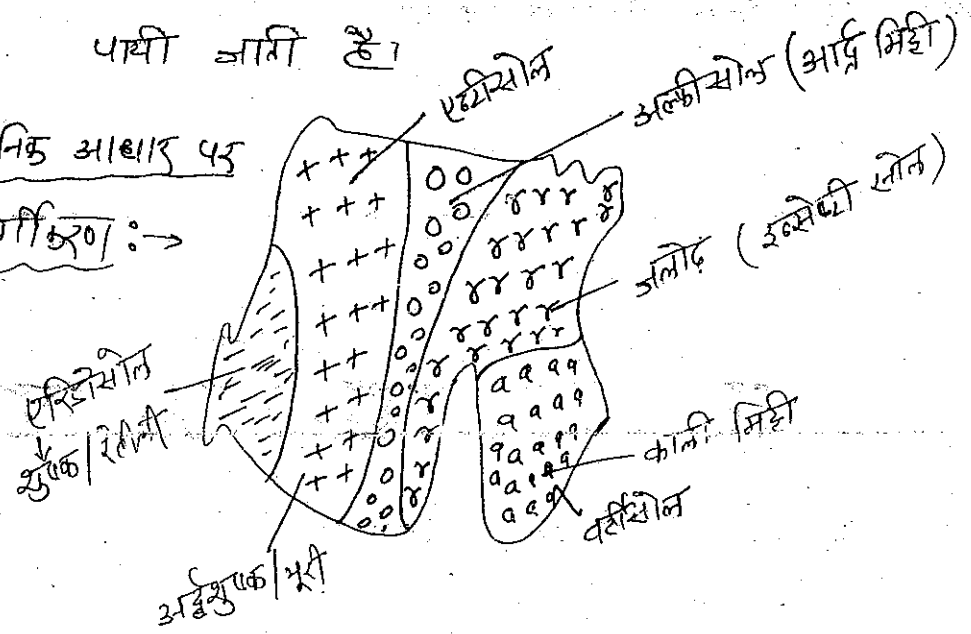 पायी जाती है।
निक आधार पर
र्गीकरण :→
एन्टीसोल
अल्फीसोल (आर्द्र मिट्टी)
जलोढ़ (इन्सेप्टी सोल)
एरिडोसोल
शुष्क/रेतीली
काली मिट्टी
वर्टीसोल
अर्द्धशुष्क/भूरी